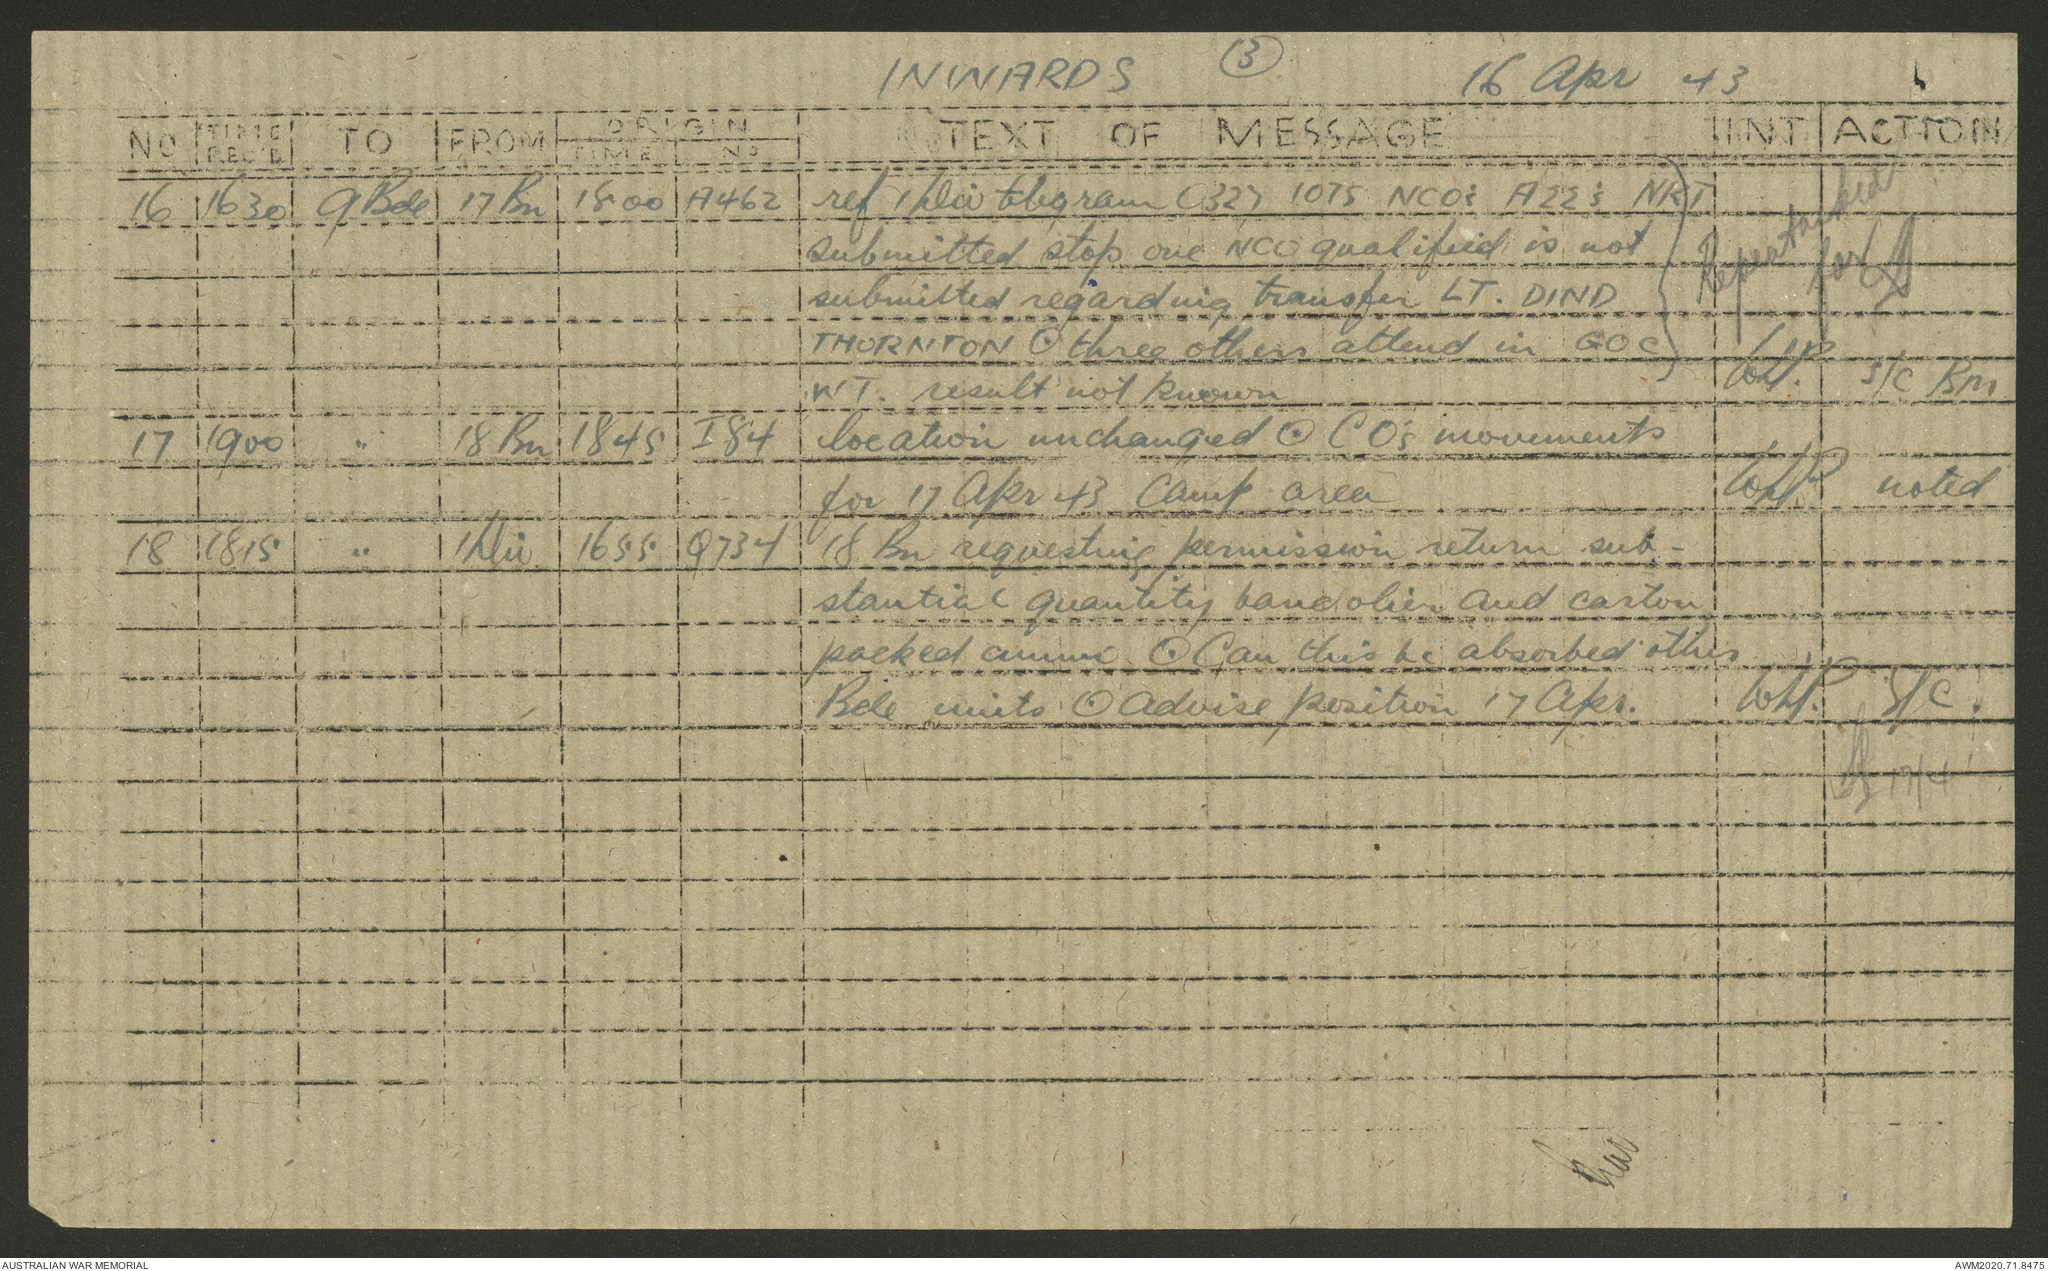 INWARDS 3 16 Apr 43
NO TIME REC'D TO FROM ORIGIN TIME NO TEXT OF MESSAGE INT ACTION
16 1630 9 Bde 17 Bn 1800 A462 ref 1 Div telegram 0327 1075 NCO's A22's NRT
submitted stop one NCO qualified is not
submitted regarding transfer LT. DIND
THORNTON ⊙ three others attend in GOC
WT. result not known WHP. S/C Bm
17 1900 " 18 Bn 1845 I84 location unchanged ⊙ CO's movements
for 17 Apr 43 Camp area WHP noted
18 1815 " 1 Div 1655 Q734 18 Bn requesting permission return sub-
stantial quantity bandolier and carton
packed ammo ⊙ Can this be absorbed other
Bde units ⊙ Advise position 17 Apr. WHP. S/C.
17/4
AUSTRALIAN WAR MEMORIAL AWM2020.71.8475